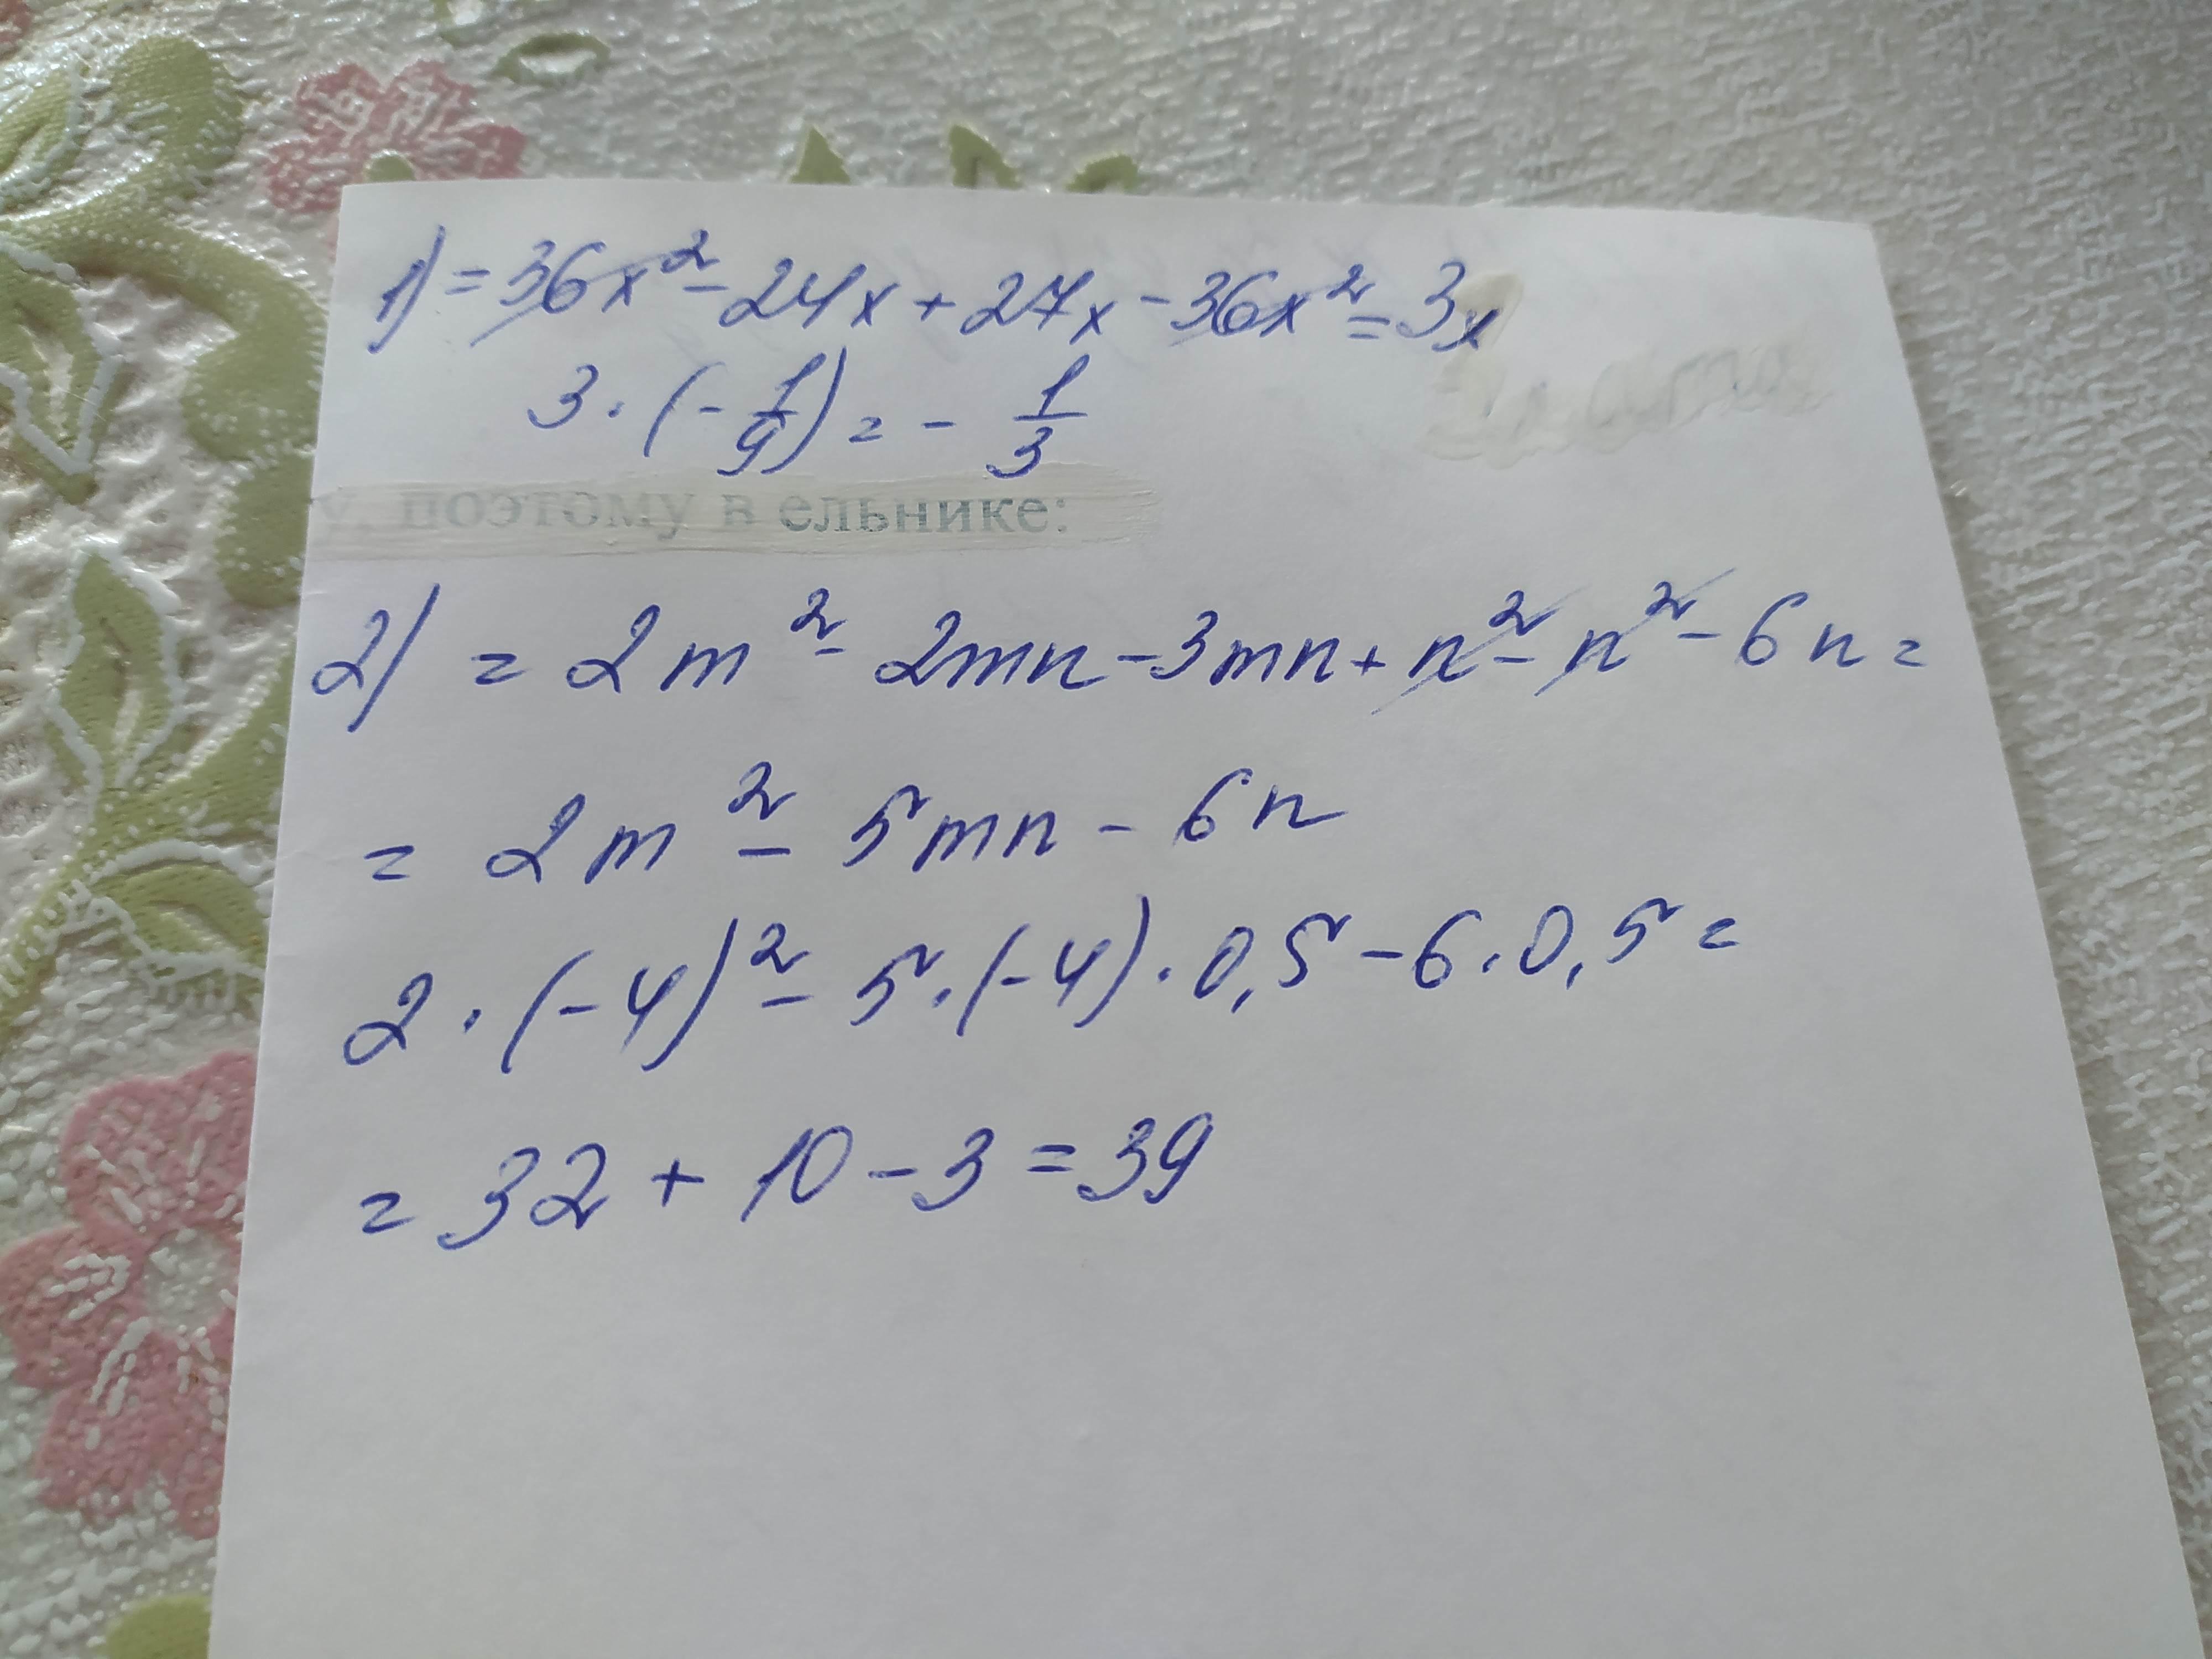 1) = 36x² - 24x + 27x - 36x² = 3x
3 · (- 1/9) = - 1/3
у, поэтому в ельнике:
2) = 2m² - 2mn - 3mn + n² - n² - 6n =
= 2m² - 5mn - 6n
2 · (-4)² - 5 · (-4) · 0,5 - 6 · 0,5 =
= 32 + 10 - 3 = 39